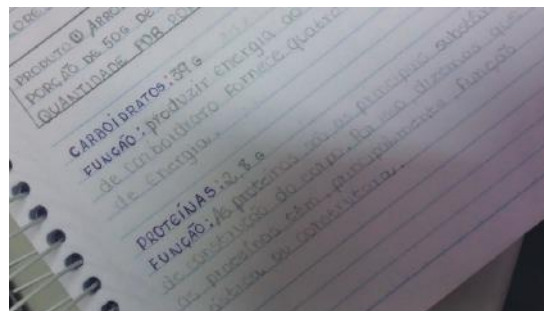 PRODUTO ① ARROZ
PORÇÃO DE 50G DE
QUANTIDADE POR POR
CARBOIDRATOS: 39 G
FUNÇÃO: produzir energia ao
de carboidrato fornece quatro
de energia.
PROTEÍNAS: 2,8 G
FUNÇÃO: As proteínas são as principais
de construção do corpo. Por isso dizemos que
as proteínas têm principalmente função
ou construtora.